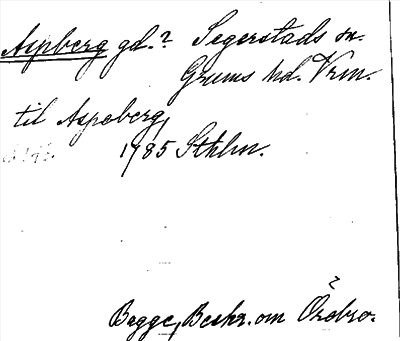 Aspberg gd.? Segerstads sn.
Grums hd. Vrm.
til Aspeberg,
1785 Sthlm.
Bagge, Beskr. om Örebro.